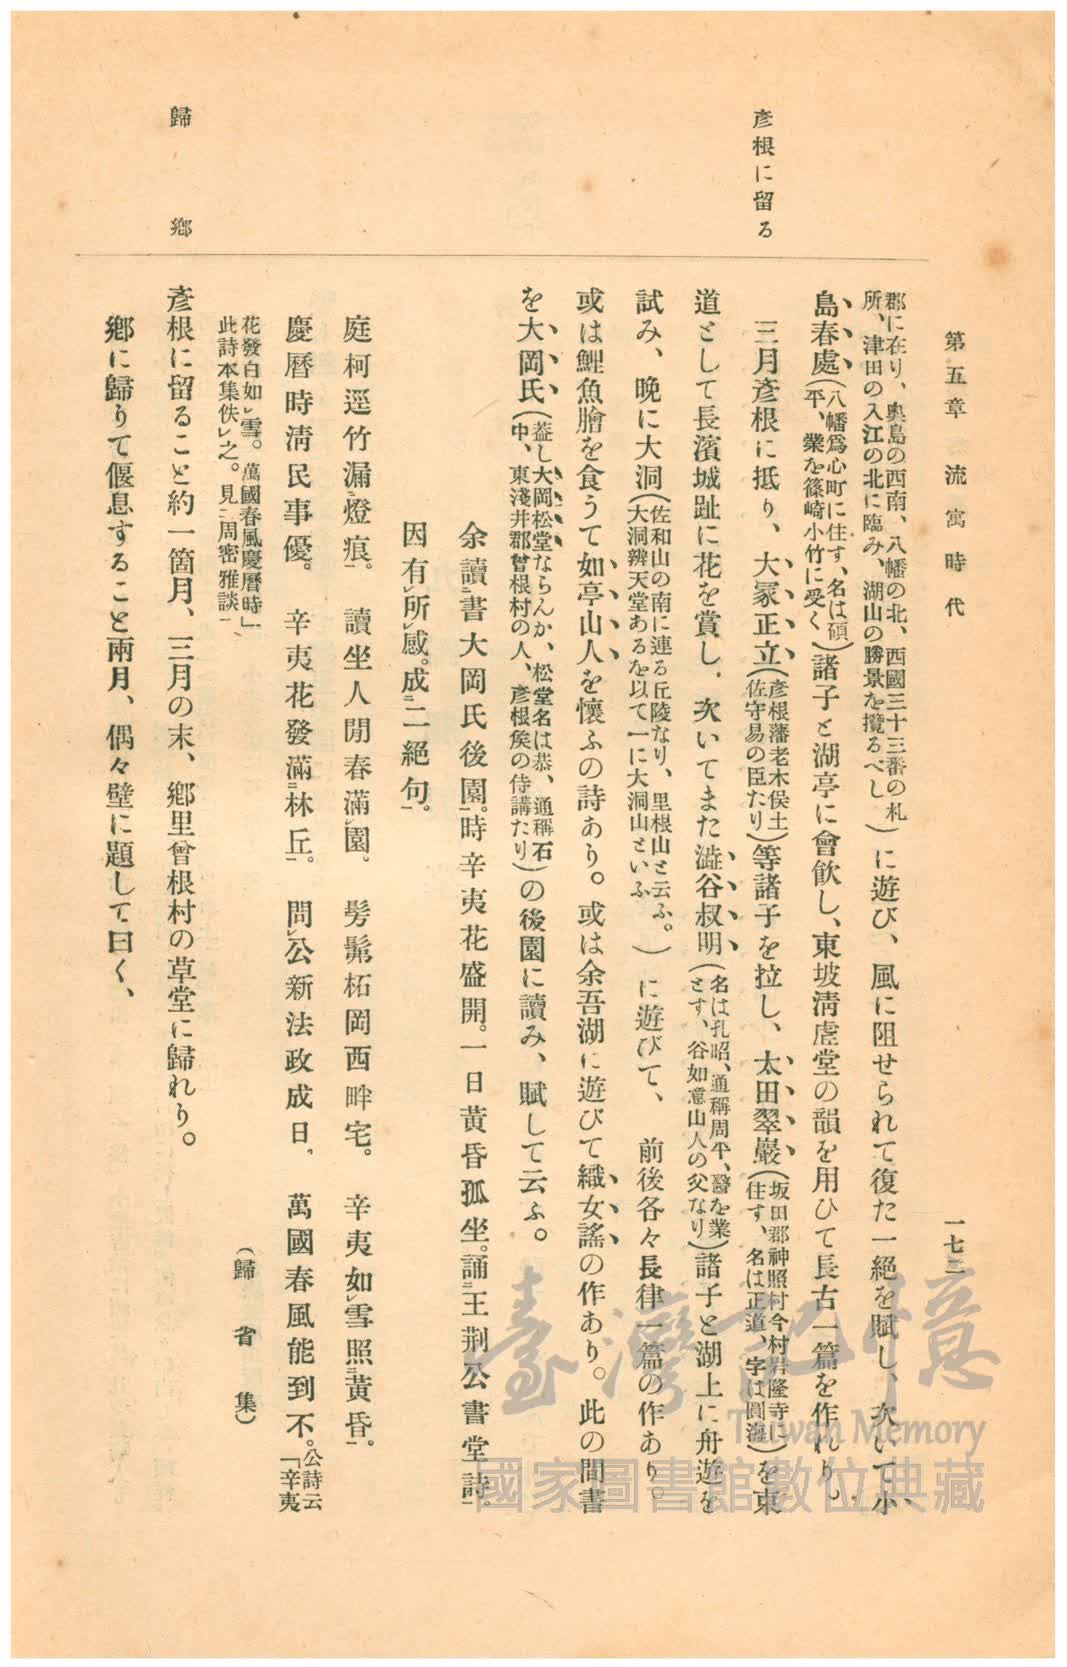 第五章 流寓時代
一七二
彥根に留る
歸鄉
郡に在り、奧島の西南、八幡の北、西國三十三番の札
所、津田の入江の北に臨み、湖山の勝景を攬るべし)に遊び、風に阻せられて復た一絕を賦し、次いで小
島春處(八幡爲心町に住す、名は碩
平、業を篠崎小竹に受く)諸子と湖亭に會飮し、東坡淸虛堂の韻を用ひて長古一篇を作れり。
三月彥根に抵り、大冢正立(彥根藩老木俣土
佐守易の臣たり)等諸子を拉し、太田翠巖(坂田郡神照村今村岩隆寺に
住す、名は正道、字は圓海)を東
道として長濱城趾に花を賞し、次いでまた澁谷叔明(名は孔昭、通稱周平、醫を業
とす、谷如意山人の父なり)諸子と湖上に舟遊を
試み、晩に大洞(佐和山の南に連る丘陵なり、里根山と云ふ。
大洞辨天堂あるを以て一に大洞山といふ)に遊びて、前後各々長律一篇の作あり。
或は鯉魚膾を食うて如亭山人を懷ふの詩あり。或は余吾湖に遊びて織女謠の作あり。此の間書
を大岡氏(蓋し大岡松堂ならんか、松堂名は恭、通稱石
中、東淺井郡曾根村の人、彥根侯の侍講たり)の後園に讀み、賦して云ふ。
余讀二書大岡氏後園一。時辛夷花盛開。一日黃昏孤坐。誦二王荆公書堂詩一。
因有レ所レ感。成二二絕句一。
庭柯逕竹漏二燈痕一。 讀坐人閒春滿レ園。 髣髴柘岡西畔宅。 辛夷如レ雪照二黃昏一。
慶曆時淸民事優。 辛夷花發滿二林丘一。 問レ公新法政成日。 萬國春風能到不。公詩云
「辛夷
花發白如レ雪。萬國春風慶曆時」
此詩本集佚レ之。見二周密雅談一
(歸省集)
彥根に留ること約一箇月、三月の末、鄕里曾根村の草堂に歸れり。
鄕に歸りて偃息すること兩月、偶々壁に題して曰く、
臺灣記憶
Taiwan Memory
國家圖書館數位典藏